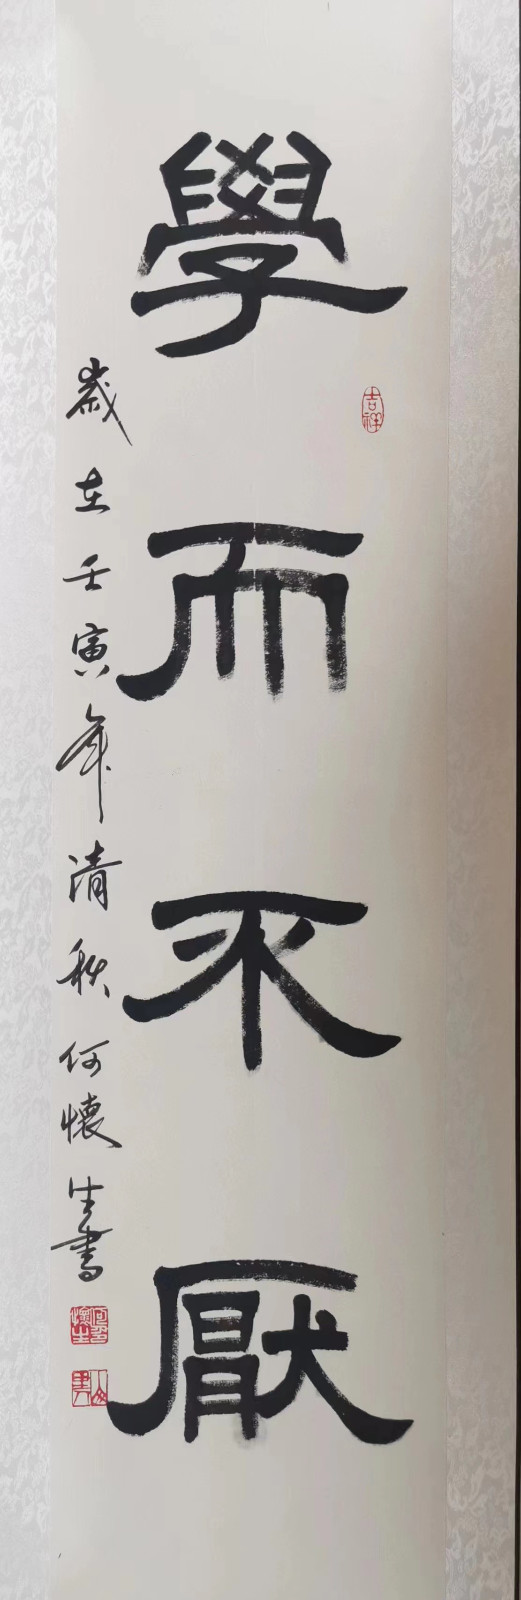 學而不厭
吉祥
歲在壬寅年清秋何懷生書